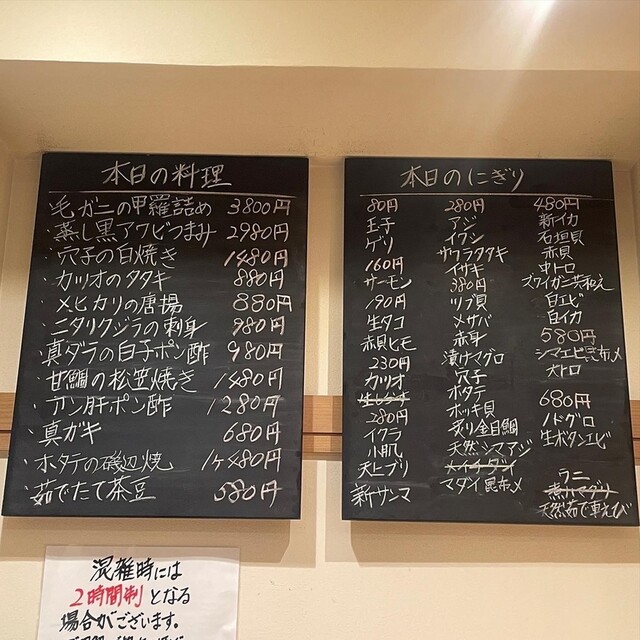 本日の料理
毛ガニの甲羅詰め 3800円
蒸し黒アワビつまみ 2980円
・穴子の白焼き 1480円
・カツオのタタキ 880円
・メヒカリの唐揚 880円
・ニタリクジラの刺身 980円
・真ダラの白子ポン酢 980円
・甘鯛の松笠焼き 1480円
・アン肝ポン酢 1280円
・真ガキ 680円
・ホタテの磯辺焼 1ヶ480円
・茹でたて茶豆 580円
本日のにぎり
80円
玉子
ゲソ
160円
サーモン
190円
生タコ
赤貝ヒモ
230円
カツオ
280円
イクラ
小肌
天上ブリ
新サンマ
280円
アジ
イワシ
サワラタタキ
イサキ
380円
ツブ貝
メサバ
赤身
漬けマグロ
穴子
ホタテ
ホッキ貝
炙り金目鯛
天然シマアジ
マダイ昆布〆
480円
新イカ
石垣貝
赤貝
中トロ
ズワイガニ芥和え
白エビ
白イカ
580円
シマエビ昆布〆
大トロ
680円
ノドグロ
生ボタンエビ
ウニ
煮ハマグリ
天然茹で車えび
混雑時には
2時間制となる
場合がございます。